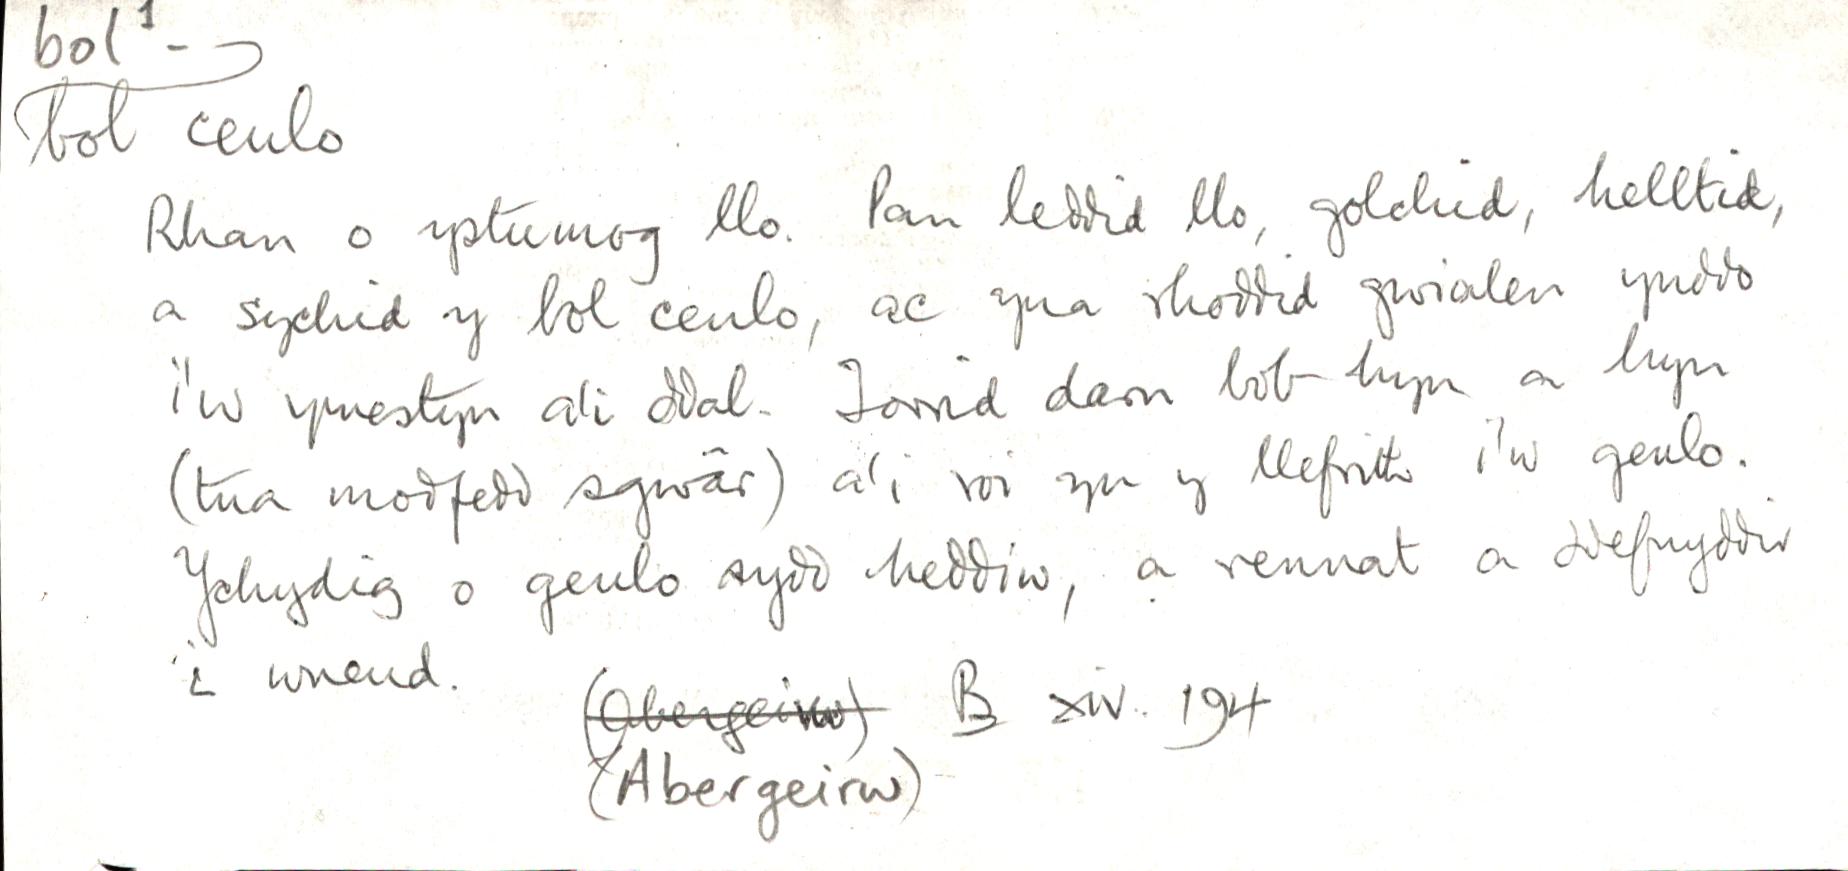 bol¹ -
bol ceulo
Rhan o ystumog llo. Pan leddid llo, golchid, helltid,
a sychid y bol ceulo, ac yna rhoddid gwialen ynddo
i'w ymestyn a'i ddal. Torrid darn bob hyn a hyn
(tua modfedd sgwâr) a'i roi yn y llefrith i'w geulo.
Ychydig o geulo sydd heddiw, a rennat a ddefnyddir
i wneud.
(Abergeirw) B xiv. 194
(Abergeirw)